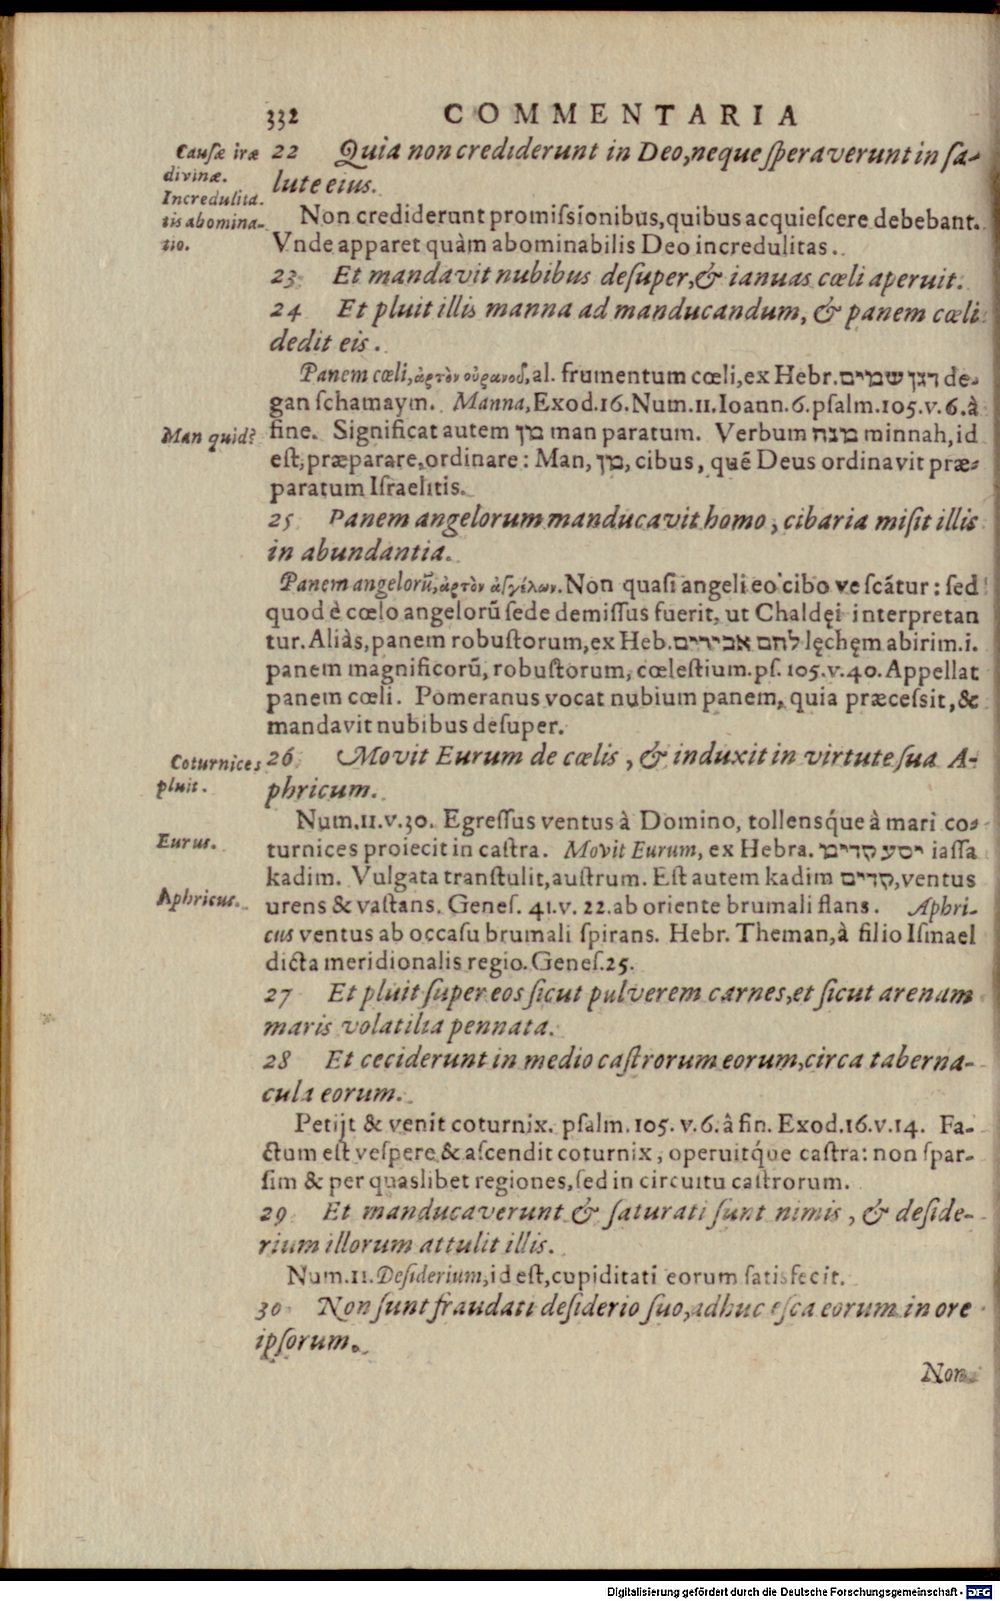 332 COMMENTARIA
Causæ iræ
divinæ.
Incredulita.
tis abomina-
tio.
22 Quia non crediderunt in Deo, neque ſperaverunt in ſa-
lute eius.
Non crediderunt promiſsionibus, quibus acquieſcere debebant.
Vnde apparet quàm abominabilis Deo incredulitas.
23 Et mandavit nubibus deſuper, & ianuas cœli aperuit.
24 Et pluit illis manna ad manducandum, & panem cœli
dedit eis.
Panem cœli, ἀρτὸν οὐρανοῦ, al. frumentum cœli, ex Hebr. דגן שמים de-
gan ſchamaym. Manna, Exod. 16. Num. 11. Ioann. 6. pſalm. 105. v. 6. à
Man quid?
fine. Significat autem מן man paratum. Verbum מנה minnah, id
eſt, præparare, ordinare: Man, מן, cibus, quē Deus ordinavit præ-
paratum Iſraelitis.
25 Panem angelorum manducavit homo, cibaria miſit illis
in abundantia.
Panem angelorū, ἀρτὸν ἀγγέλων. Non quaſi angeli eo cibo veſcātur: ſed
quod è cœlo angelorū ſede demiſſus fuerit, ut Chaldęi interpretan
tur. Aliàs, panem robuſtorum, ex Heb. לחם אבירים lęchęm abirim. i.
panem magnificorū, robuſtorum, cœleſtium. pſ. 105. v. 40. Appellat
panem cœli. Pomeranus vocat nubium panem, quia præceſsit, &
mandavit nubibus deſuper.
Coturnices
pluit.
26 Movit Eurum de cœlis, & induxit in virtute ſua A-
phricum.
Num. 11. v. 30. Egreſſus ventus à Domino, tollensq́ue à mari co-
Eurus.
turnices proiecit in caſtra. Movit Eurum, ex Hebra. יסע קדים iaſſa
kadim. Vulgata tranſtulit, auſtrum. Eſt autem kadim קדים, ventus
Aphricus.
urens & vaſtans. Geneſ. 41. v. 22. ab oriente brumali flans. Aphri-
cus ventus ab occaſu brumali ſpirans. Hebr. Theman, à filio Iſmael
dicta meridionalis regio. Geneſ. 25.
27 Et pluit ſuper eos ſicut pulverem carnes, et ſicut arenam
maris volatilia pennata.
28 Et ceciderunt in medio caſtrorum eorum, circa taberna-
cula eorum.
Petijt & venit coturnix. pſalm. 105. v. 6. â fin. Exod. 16. v. 14. Fa-
ctum eſt veſpere & aſcendit coturnix, operuitq́ue caſtra: non ſpar-
ſim & per quaslibet regiones, ſed in circuitu caſtrorum.
29 Et manducaverunt & ſaturati ſunt nimis, & deſide-
rium illorum attulit illis.
Num. 11. Deſiderium, id eſt, cupiditati eorum ſatisfecit.
30 Non ſunt fraudati deſiderio ſuo, adhuc eſca eorum in ore
ipſorum.
Non
Digitalisierung gefördert durch die Deutsche Forschungsgemeinschaft - DFG